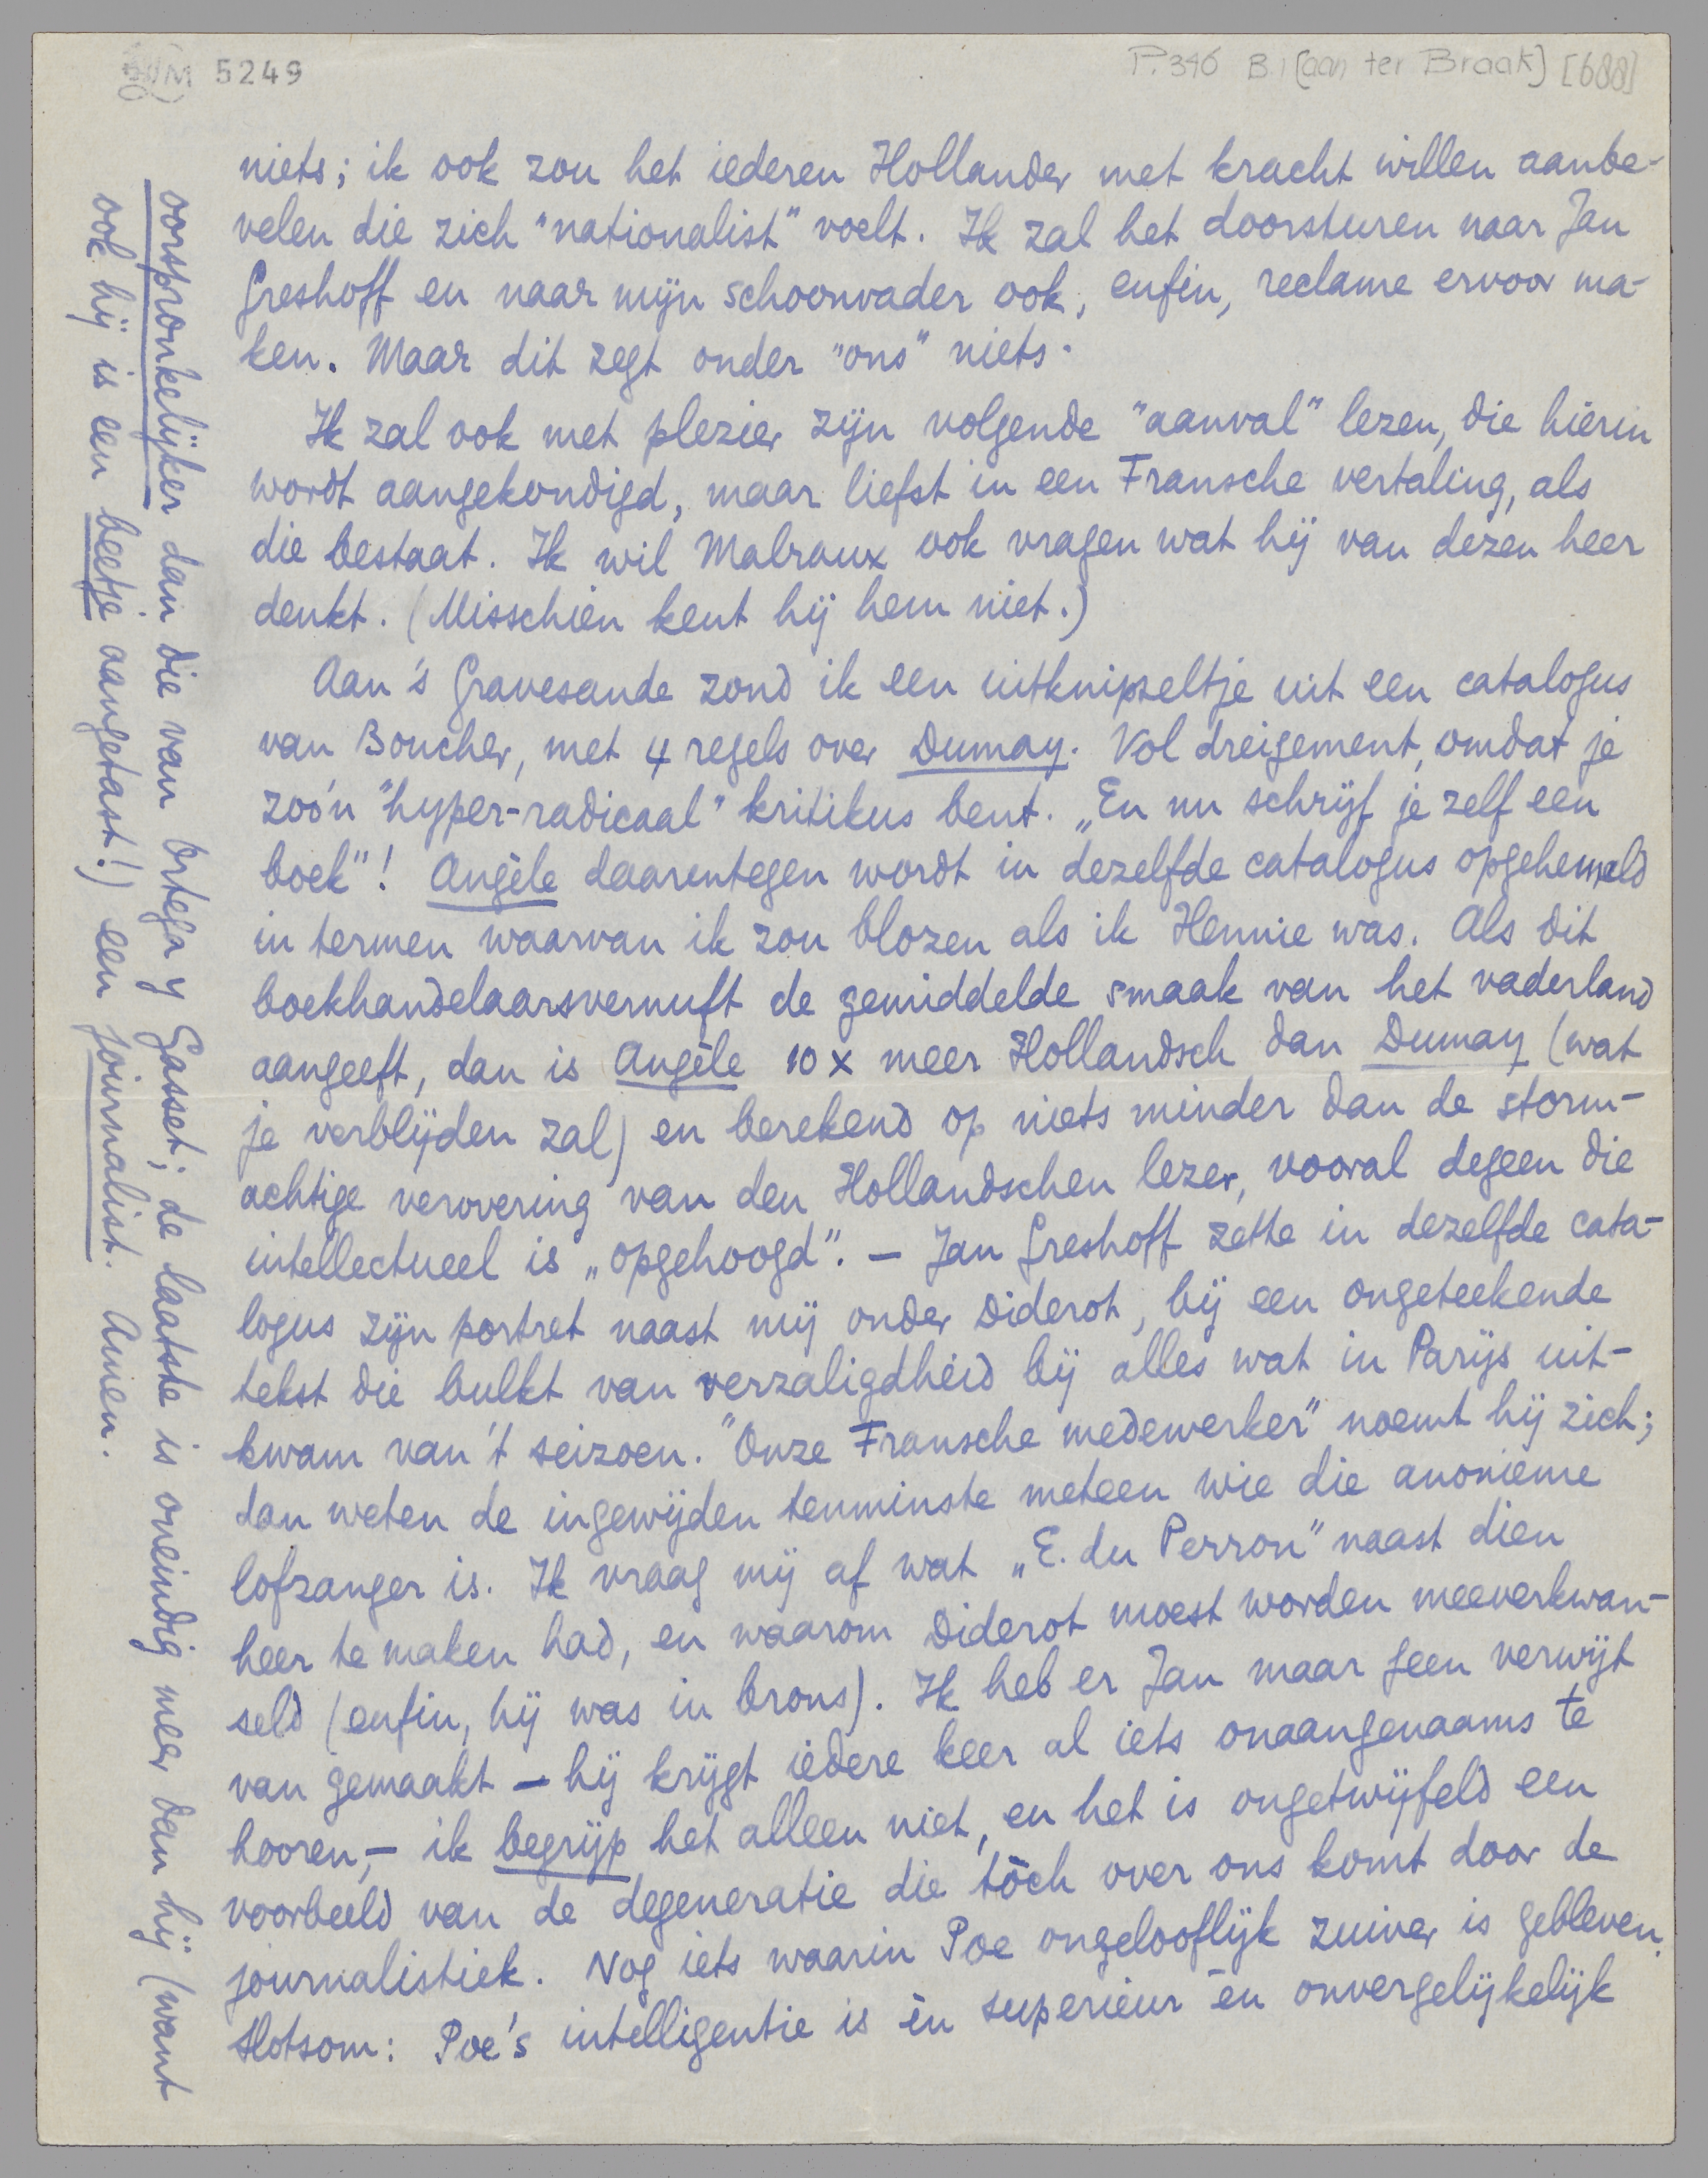 5249
P. 346 B. (aan ter Braak) [688]
niets; ik ook zou het iederen Hollander met kracht willen aanbe-
velen die zich "nationalist" voelt. Ik zal het doorsturen naar Jan
Greshoff en naar mijn schoonvader ook, enfin, reclame ervoor ma-
ken. Maar dit zegt onder "ons" niets.
Ik zal ook met plezier zijn volgende "aanval" lezen, die hierin
wordt aangekondigd, maar liefst in een Fransche vertaling, als
die bestaat. Ik wil Malraux ook vragen wat hij van dezen heer
denkt. (Misschien kent hij hem niet.)
Aan 's Gravesande zond ik een uitknipseltje uit een catalogus
van Boucher, met 4 regels over Dumay. Vol dreigement, omdat je
zoo'n "hyper-radicaal" kritikus bent. „En nu schrijf je zelf een
boek"! Angèle daarentegen wordt in dezelfde catalogus opgehemeld
in termen waarvan ik zou blozen als ik Hennie was. Als dit
boekhandelaarsvernuft de gemiddelde smaak van het vaderland
aangeeft, dan is Angèle 10 x meer Hollandsch dan Dumay (wat
je verblijden zal) en berekend op niets minder dan de storm-
achtige verovering van den Hollandschen lezer, vooral degeen die
intellectueel is „opgehoogd". — Jan Greshoff zette in dezelfde cata-
logus zijn portret naast mij onder Diderot, bij een ongeteekende
tekst die bulkt van verzaligdheid bij alles wat in Parijs uit-
kwam van 't seizoen. "Onze Fransche medewerker" noemt hij zich;
dan weten de ingewijden tenminste meteen wie die anonieme
lofzanger is. Ik vraag mij af wat „E. du Perron" naast dien
heer te maken had, en waarom Diderot moest worden meeverkwan-
seld (enfin, hij was in brons). Ik heb er Jan maar geen verwijt
van gemaakt — hij krijgt iedere keer al iets onaangenaams te
hooren, — ik begrijp het alleen niet, en het is ongetwijfeld een
voorbeeld van de degeneratie die tòch over ons komt door de
journalistiek. Nog iets waarin Poe ongelooflijk zuiver is gebleven.
Slotsom: Poe's intelligentie is èn superieur èn onvergelijkelijk
oorspronkelijker dan die van Ortega y Gasset; de laatste is oneindig meer dan hij (want
ook hij is een beetje aangetast!) een journalist. Amen.